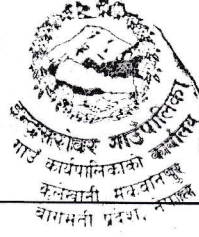 इन्द्रसरोवर गाउँपालिका
गाउँ कार्यपालिकाको कार्यालय
कुलेखानी मकवानपुर
बागमती प्रदेश, नेपाल